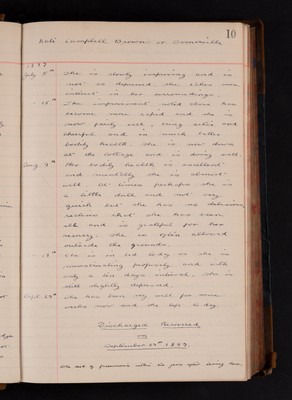 10
Kate Campbell Brown or Somerville
1897
July 8th She is slowly improving and is
not so depressed, she takes more
interest in her surroundings.
" 15th The improvement noted above has
become more rapid and she is
now fairly well, being active and
cheerful and in much better
bodily health. She is now down
at the Cottage and is doing well.
Aug. 9th Her bodily health is excellent
and mentally she is almost
well. At times perhaps she is
a little dull and not very
quick but she has no delusions,
realises that she has been
ill and is grateful for her
recovery. She is often allowed
outside the grounds.
She is in bed today as she is
menstruating properly and with
only a ten days interval. She is
still slightly depressed.
Sept. 29th She has been very well for some
weeks now and she left to day.
Discharged Recovered
on
September 29th 1897.